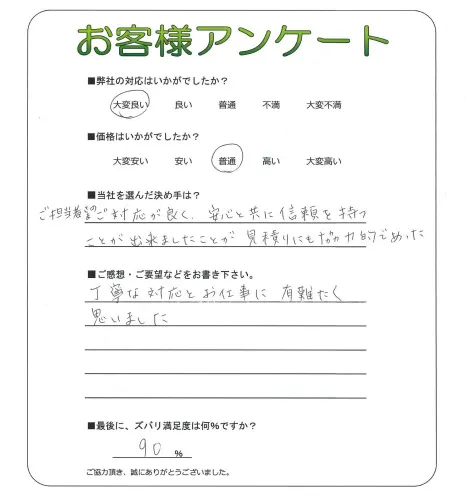 お客様アンケート
■弊社の対応はいかがでしたか?
大変良い 良い 普通 不満 大変不満
■価格はいかがでしたか?
大変安い 安い 普通 高い 大変高い
■当社を選んだ決め手は?
ご担当者のご対応が良く、安心と共に信頼を持つ
ことが出来ましたことが見積りにも協力的であった
■ご感想・ご要望などをお書き下さい。
丁寧な対応とお仕事に有難たく
思いました
■最後に、ズバリ満足度は何%ですか?
90 %
ご協力頂き、誠にありがとうございました。